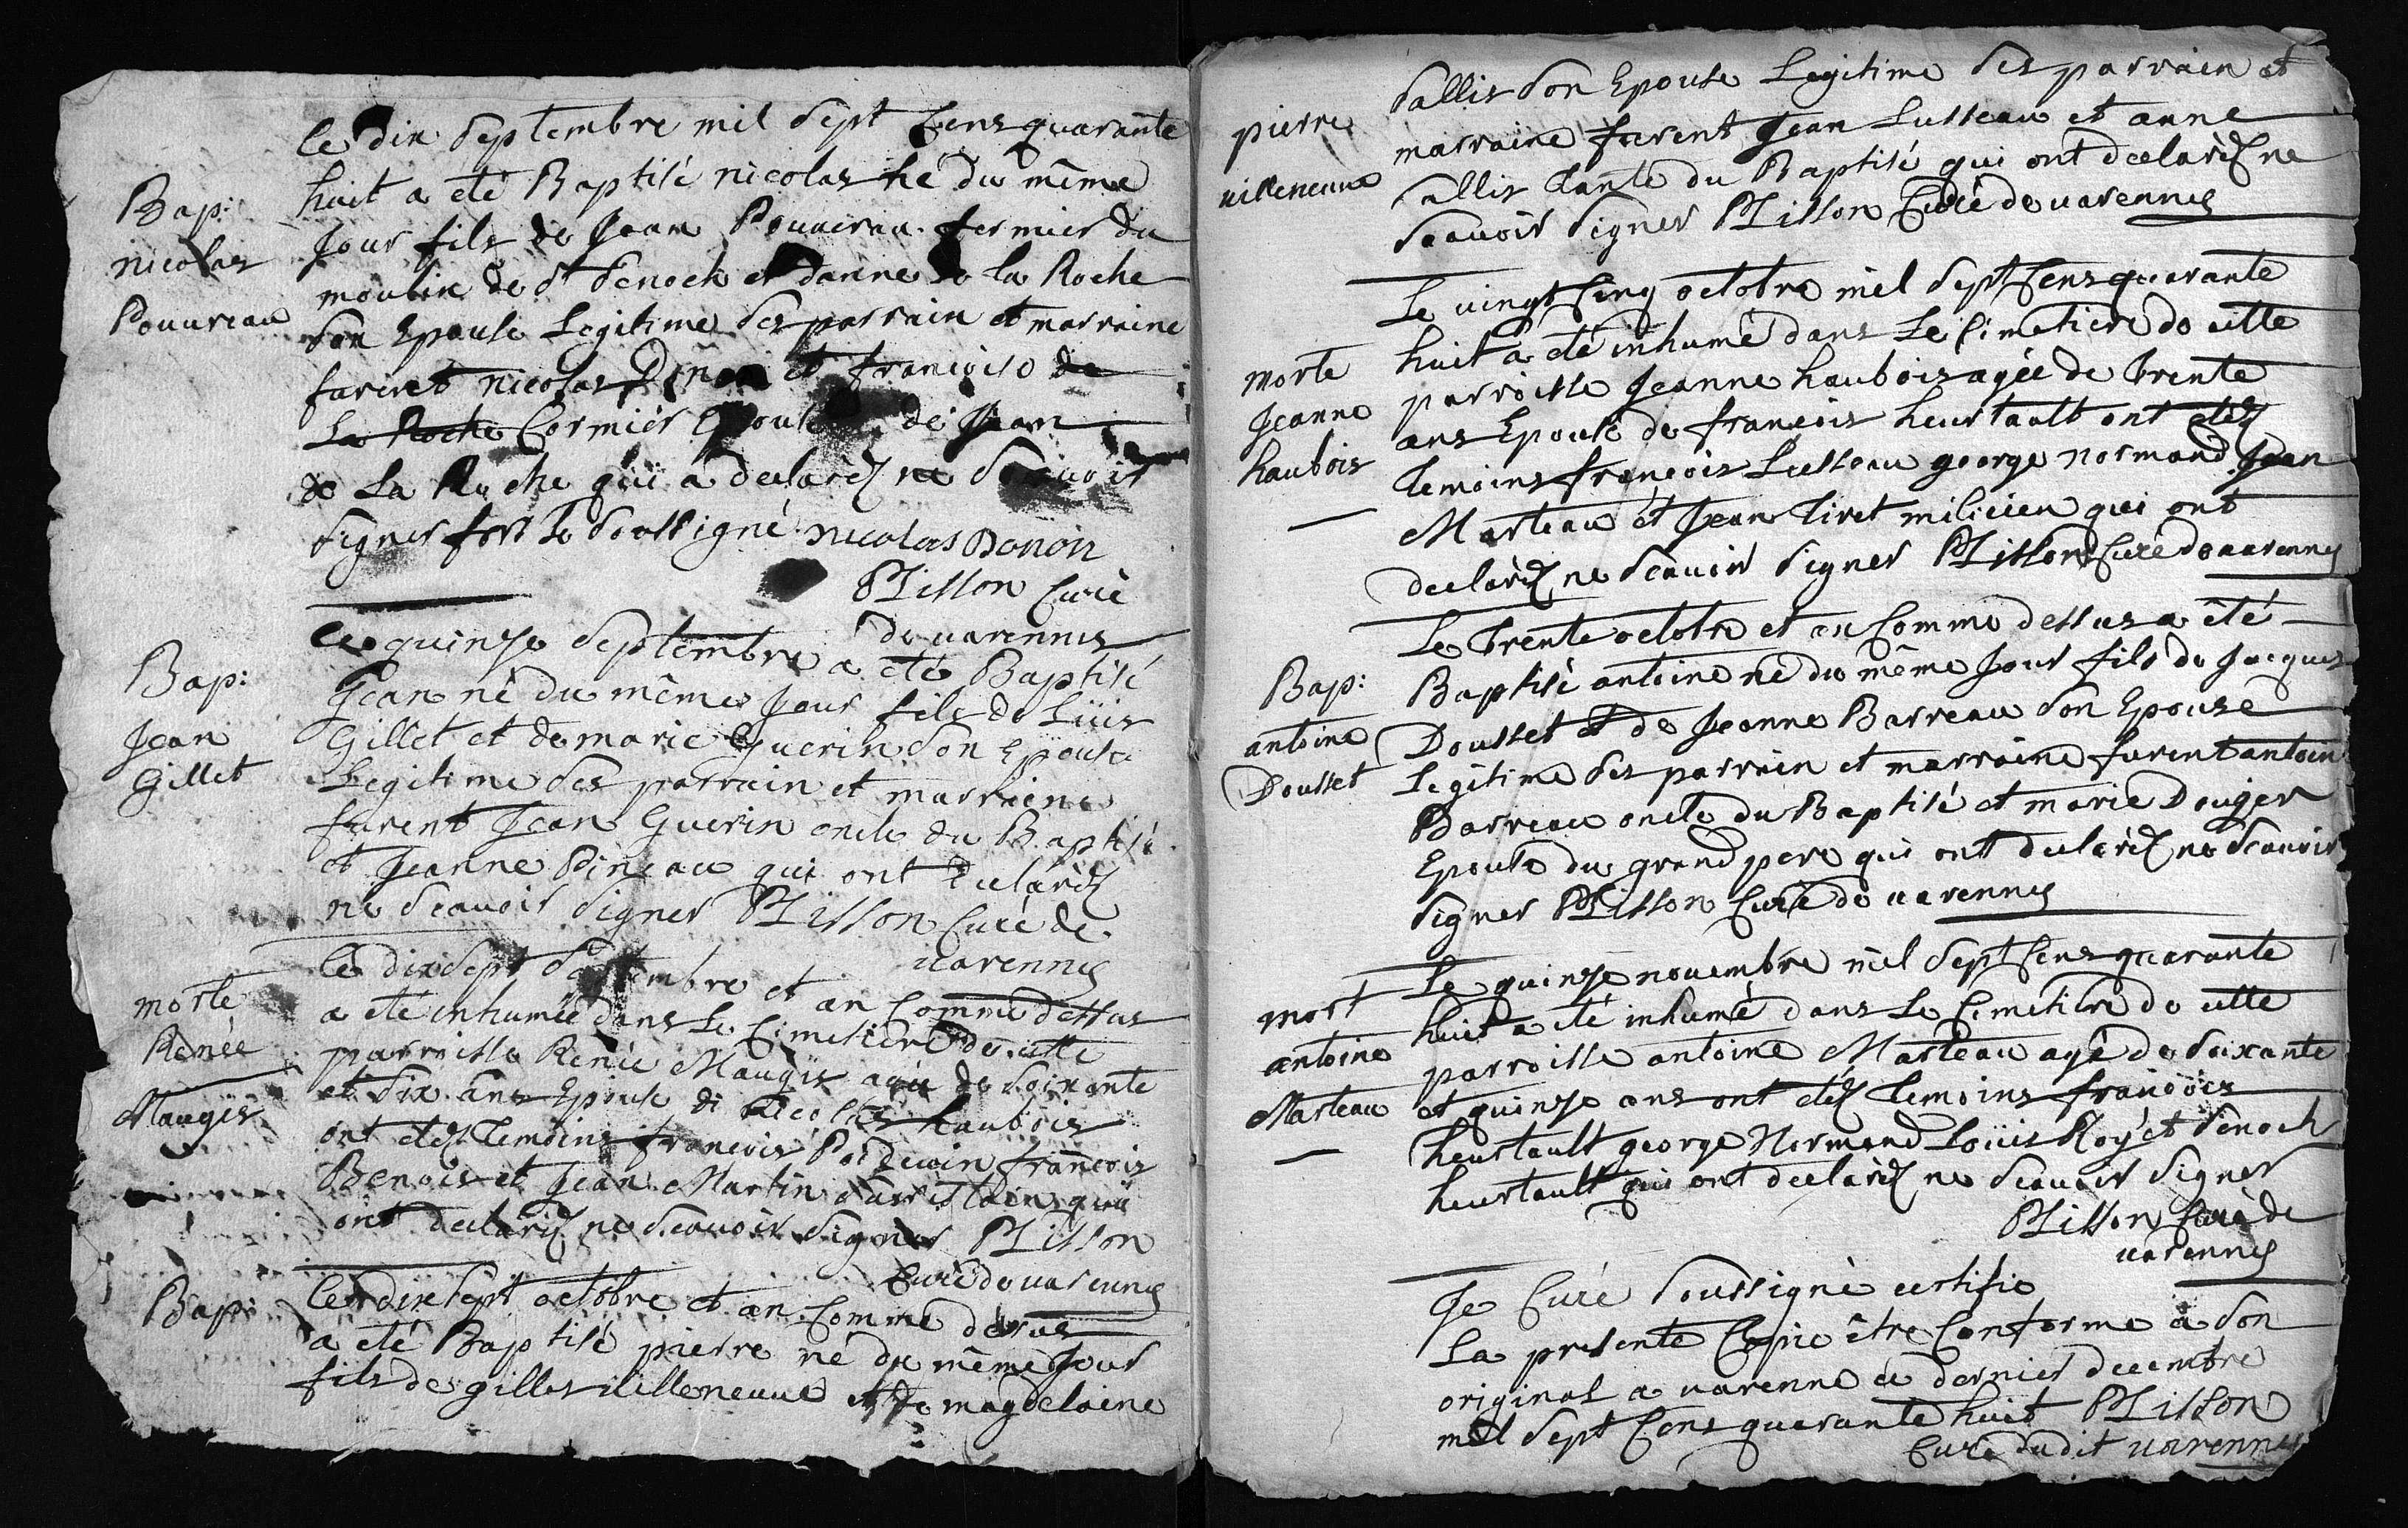 Bap:
nicolas
Pouureau
Le dix Septembre mil Sept Cens quarante
huit a eté Baptisé nicolas né du même
Jour fils de Jean Pouureau fermier du
moulin de St Senoch et danne de la Roche
Son Epouse Legitime Ses parrain et marraine
furent nicolas Donon et françoise de
La Roche Cormier Epouse de Jean
de La Roche qui a declaréz ne Scauoir
Signer fors le Soussigné nicolas Donon
PLisson Curé
de uarennes
Bap:
Jean
Gillet
Le quinze Septembre a eté Baptisé
Jean né du même Jour fils de Loüis
Gillet et de marie Guerin Son Epouse
Legitime Ses parrain et marraine
furent Jean Guerin oncle du Baptisé
et Jeanne Pineau qui ont declaréz
ne Scauoir Signer PLisson Curé de
uarennes
morte
Renée
Maugis
Le dixSept Septembre et an Comme dessus
a eté inhumée dans Le Cimetiere de cette
parroisse Renée Maugis agée de Soixante
et dix ans Epouse de nicolas haubois
ont etéz temoins françois Poideuin françois
Benois et Jean Martin Sacristain qui
ont declaréz ne Scauoir Signer PLisson
Curé de uarennes
Bap:
Le dixsept octobre et an Comme dessus
a eté Baptisé pierre né du même Jour
fils de gilles uilleneuue et de magdelaine
pierre
uilleneuue
Sallis Son Epouse Legitime Ses parrain et
marraine furent Jean Lusseau et anne
Sallis tante du Baptisé qui ont declaréz ne
Scauoir Signer PLisson Curé de uarennes
morte
Jeanne
haubois
Le uingt Cinq octobre mil Sept Cens quarante
huit a eté inhumé dans Le Cimetiere de cette
parroisse Jeanne haubois agée de trente
ans Epouse de françois heurtault ont etéz
temoins françois Lusseau george normand Jean
Marteau et Jean tiret milicien qui ont
declaréz ne Scauoir Signer PLisson Curé de uarennes
Bap:
antoine
Dousset
Le trente octobre et an Comme dessus a été
Baptisé antoine né du même Jour fils de Jacques
Dousset et de Jeanne Barreau Son Epouse
Legitime Ses parrain et marraine furent antoin
Barreau oncle du Baptisé et marie Douger
Epouse du grand pere qui ont declaréz ne Scauoir
Signer PLisson Curé de uarennes
mort
antoine
Marteau
Le quinze nouembre mil Sept Cens quarante
huit a eté inhumé dans Le Cimetiere de cette
parroisse antoine Marteau agé de Soixante
et quinze ans ont etéz temoins françois
heurtault george Normand Loüis Roÿ et Senoch
heurtault qui ont declaréz ne Scauoir Signer
PLisson Curé de
uarennes
Je Curé Soussigné certifie
La presente Copie être Conforme a Son
original a uarenne ce dernier decembre
mil Sept Cens quarante huit PLisson
Curé dudit uarennes